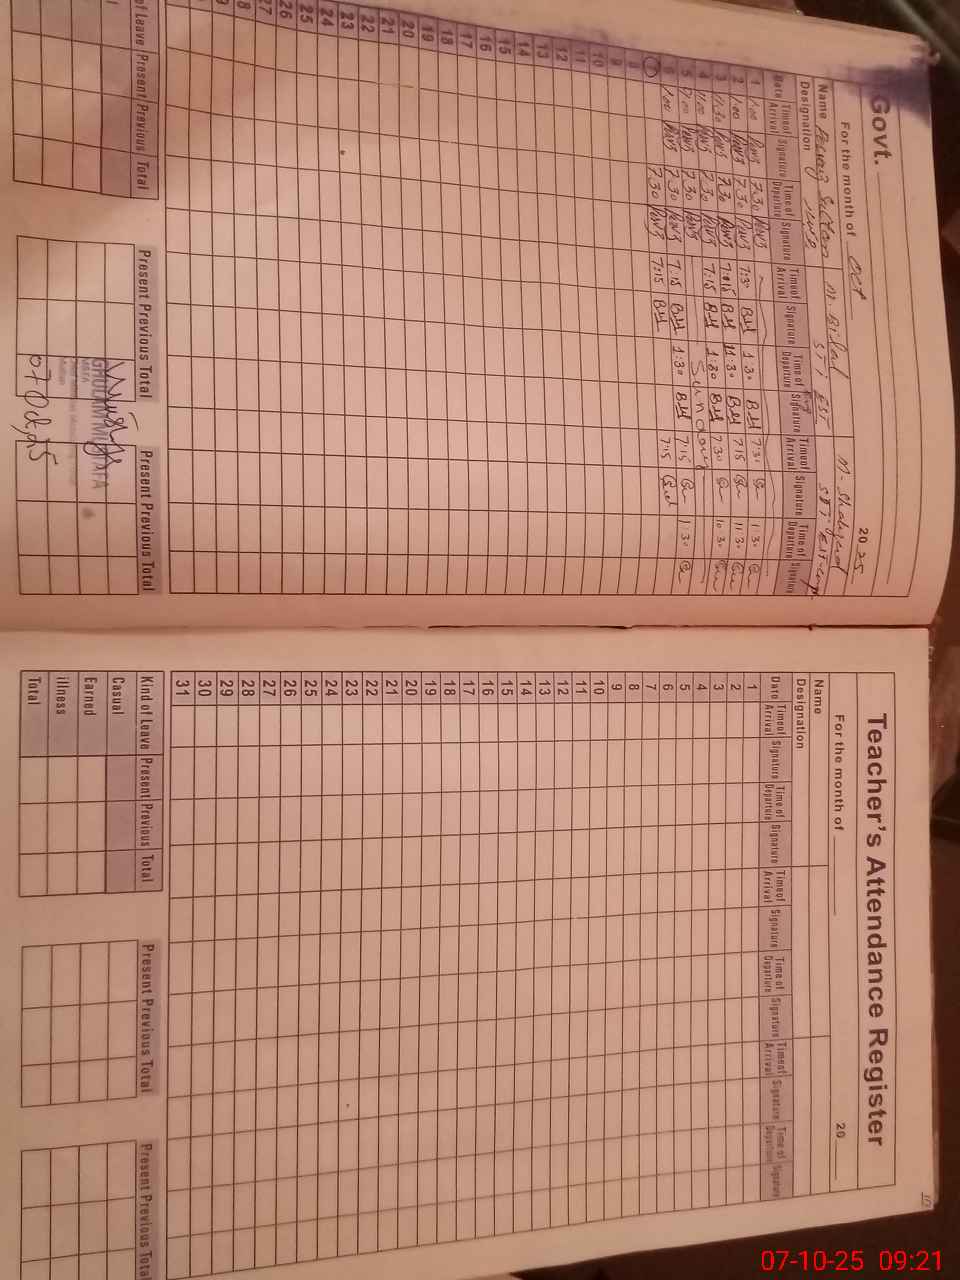 Govt.
For the month of Oct 2025
Name M. Bilal
Designation SST EST
Date Time of Arrival Signature Time of Departure Signature Time of Arrival Signature Time of Departure Signature Time of Arrival Signature Time of Departure Signature
1 1.00 7.30 7:3 1:30 7:31 1:30
2 1.00 7.30 7:15 11:30 7:15 11:30
3 11.30 7.30 7:15 1:30 7:30 10:30
4 1.00 7.30
5 7.00 7.30 Sunday
6 1.00 7.30 7:15 1:30 7:15 1:30
7 7.30 7:15 7:15
8
9
10
11
12
13
14
15
16
17
18
19
20
21
22
23
24
25
26
27
of Leave Present Previous Total
Present Previous Total
Present Previous Total
GHULAM MUSTAFA
07 Oct 25
Teacher's Attendance Register
For the month of 20
Name
Designation
Date Time of Arrival Signature Time of Departure Signature Time of Arrival Signature Time of Departure Signature Time of Arrival Signature Time of Departure Signature
1
2
3
4
5
6
7
8
9
10
11
12
13
14
15
16
17
18
19
20
21
22
23
24
25
26
27
28
29
30
31
Kind of Leave Present Previous Total
Present Previous Total
Present Previous Total
Casual
Earned
illness
Total
07-10-25 09:21